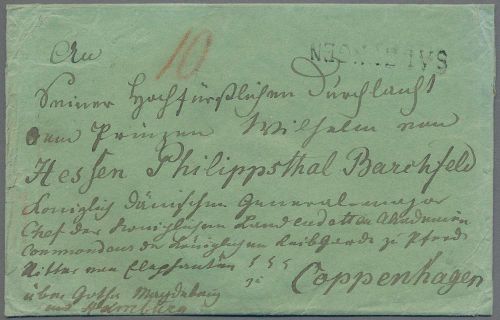 An
10
SALZUNGEN
Seiner Hochfürstlichen Durchlaucht
dem Prinzen Wilhelm von
Hessen Philippsthal Barchfeld
Königlich Dänischen General-major
Chef der Königlichen Land cadetten Akademien
Commandeur der Königlichen Leib Garde zu Pferde
Ritter vom Elephanten
zu
Coppenhagen
über Gotha Magdeburg
und Hamburg